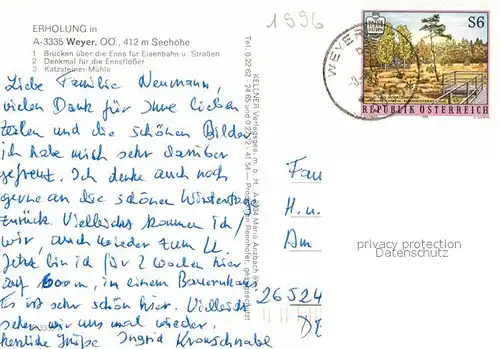 1996
ERHOLUNG in
A-3335 Weyer, OÖ., 412 m Seehöhe
1 Brücken über die Enns für Eisenbahn u. Straßen
2 Denkmal für die Ennsflößer
3 Katzsteiner-Mühle
Liebe Familie Neumann,
vielen Dank für Ihre lieben
Zeilen und die schönen Bilder,
ich habe mich sehr darüber
gefreut. Ich denke auch noch
gerne an die schönen Wintertage
zurück. Vielleicht kommen ich/
wir, auch wieder zum
Jetzt bin ich für 2 Wochen hier
auf 600m, in einem Bauernhaus
Es ist sehr schön hier. Vielleicht
sehen wir uns mal wieder.
herzliche Grüße Ingrid
KELLNER Verlagsges. m. b. H., A-3034 Maria Anzbach
Tel. 0 22 62 - 24 66 und 0 27 72 - 41 54 — Produktion Rennhofer, gesetzl. geschützt
WEYER
S6
REPUBLIK ÖSTERREICH
Frau
H. u.
Am
privacy protection
Datenschutz
26524